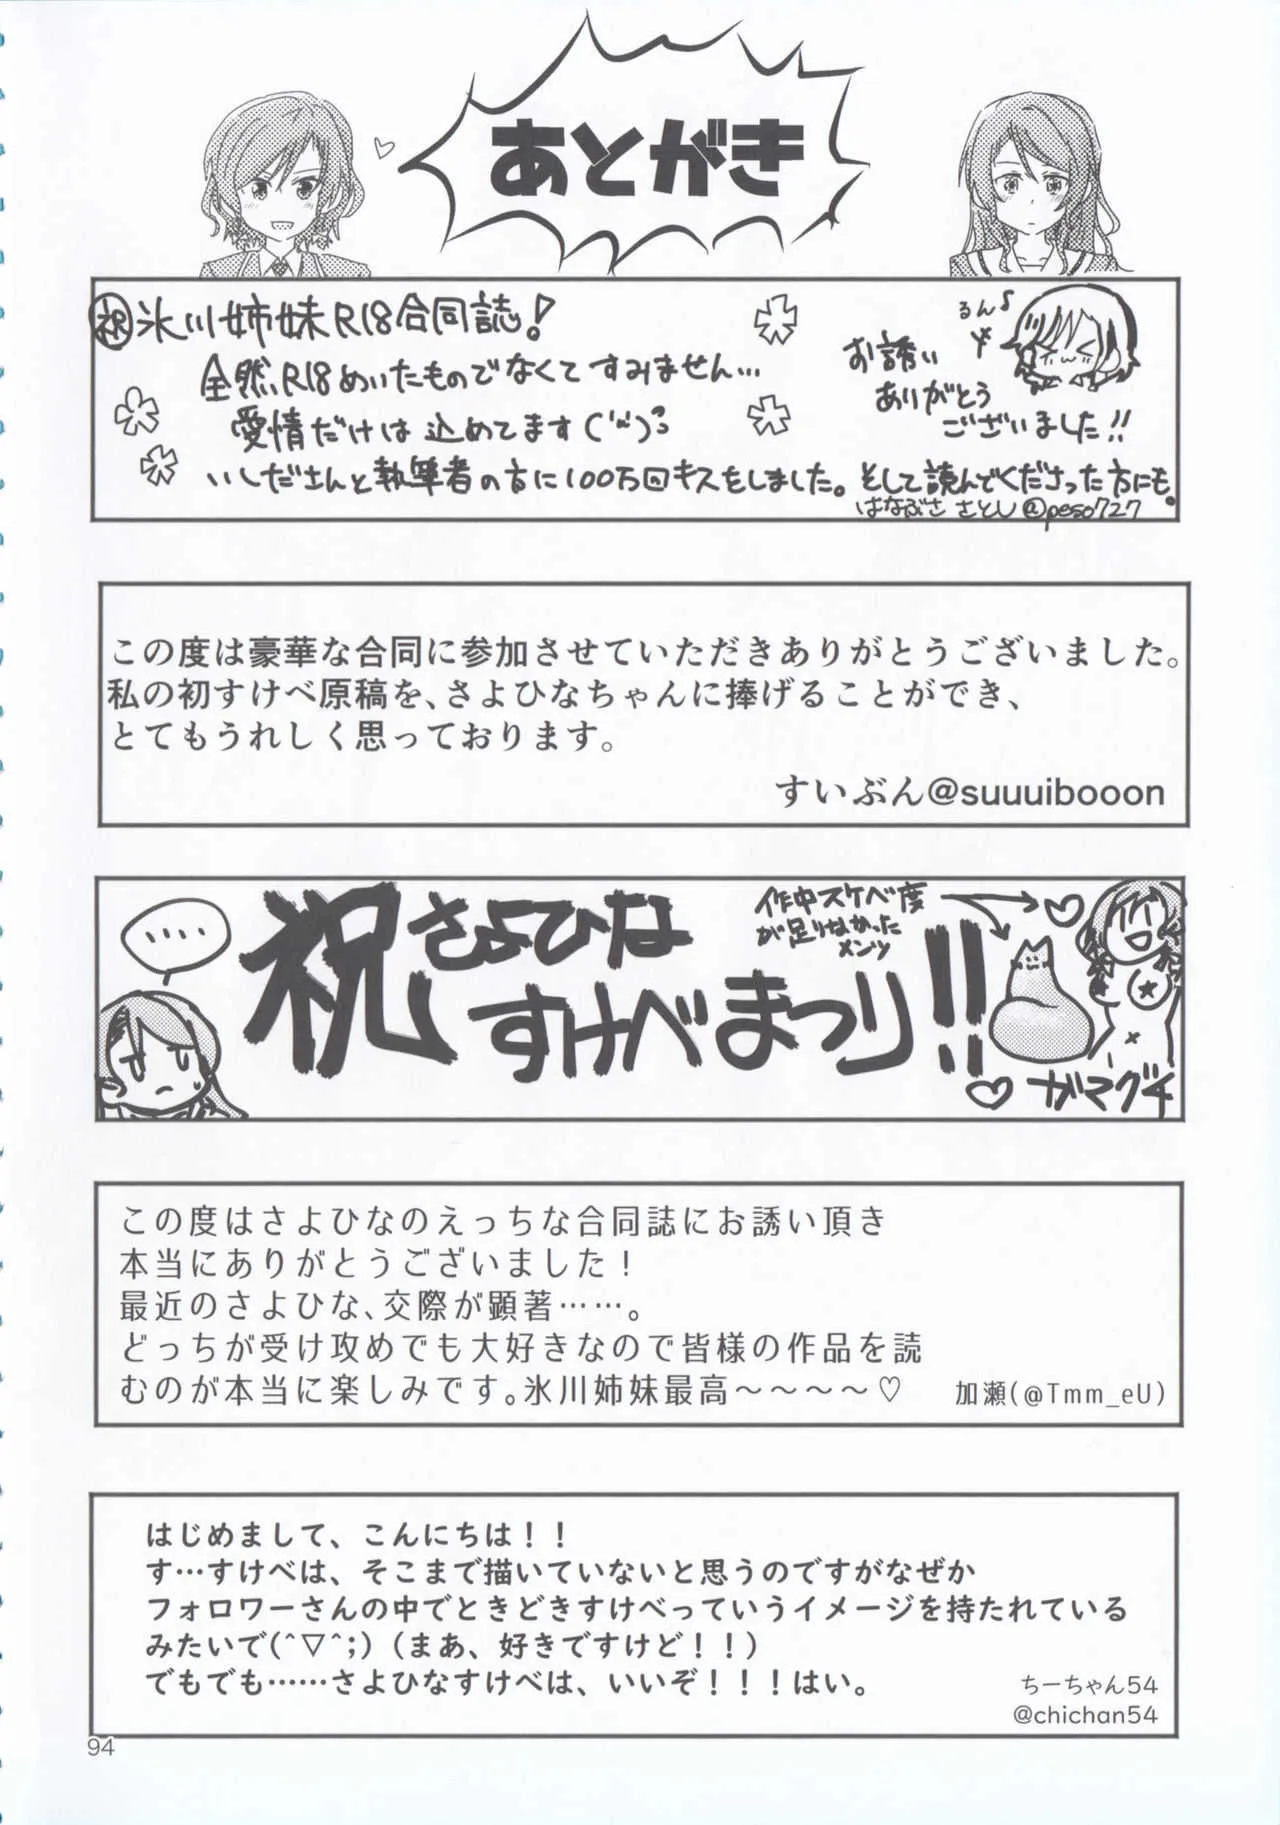 あとがき
祝 氷川姉妹R18合同誌！
全然R18めいたものでなくてすみません…
愛情だけは込めてます
いしださんと執筆者の方に100万回キスをしました。そして読んでくださった方にも。
るん♪
お誘い
ありがとう
ございました!!
はなぶさ さとし @peso727
この度は豪華な合同に参加させていただきありがとうございました。
私の初すけべ原稿を、さよひなちゃんに捧げることができ、
とてもうれしく思っております。
すいぶん@suuuibooon
‥‥
祝 さよひな
すけべまつり!!
作中スケベ度
が足りなかった
メンツ
ガマグチ
この度はさよひなのえっちな合同誌にお誘い頂き
本当にありがとうございました！
最近のさよひな、交際が顕著……。
どっちが受け攻めでも大好きなので皆様の作品を読
むのが本当に楽しみです。氷川姉妹最高～～～～♡
加瀬(@Tmm_eU)
はじめまして、こんにちは！！
す…すけべは、そこまで描いていないと思うのですがなぜか
フォロワーさんの中でときどきすけべっていうイメージを持たれている
みたいで(^▽^;)（まあ、好きですけど！！）
でもでも……さよひなすけべは、いいぞ！！！はい。
ちーちゃん54
@chichan54
94